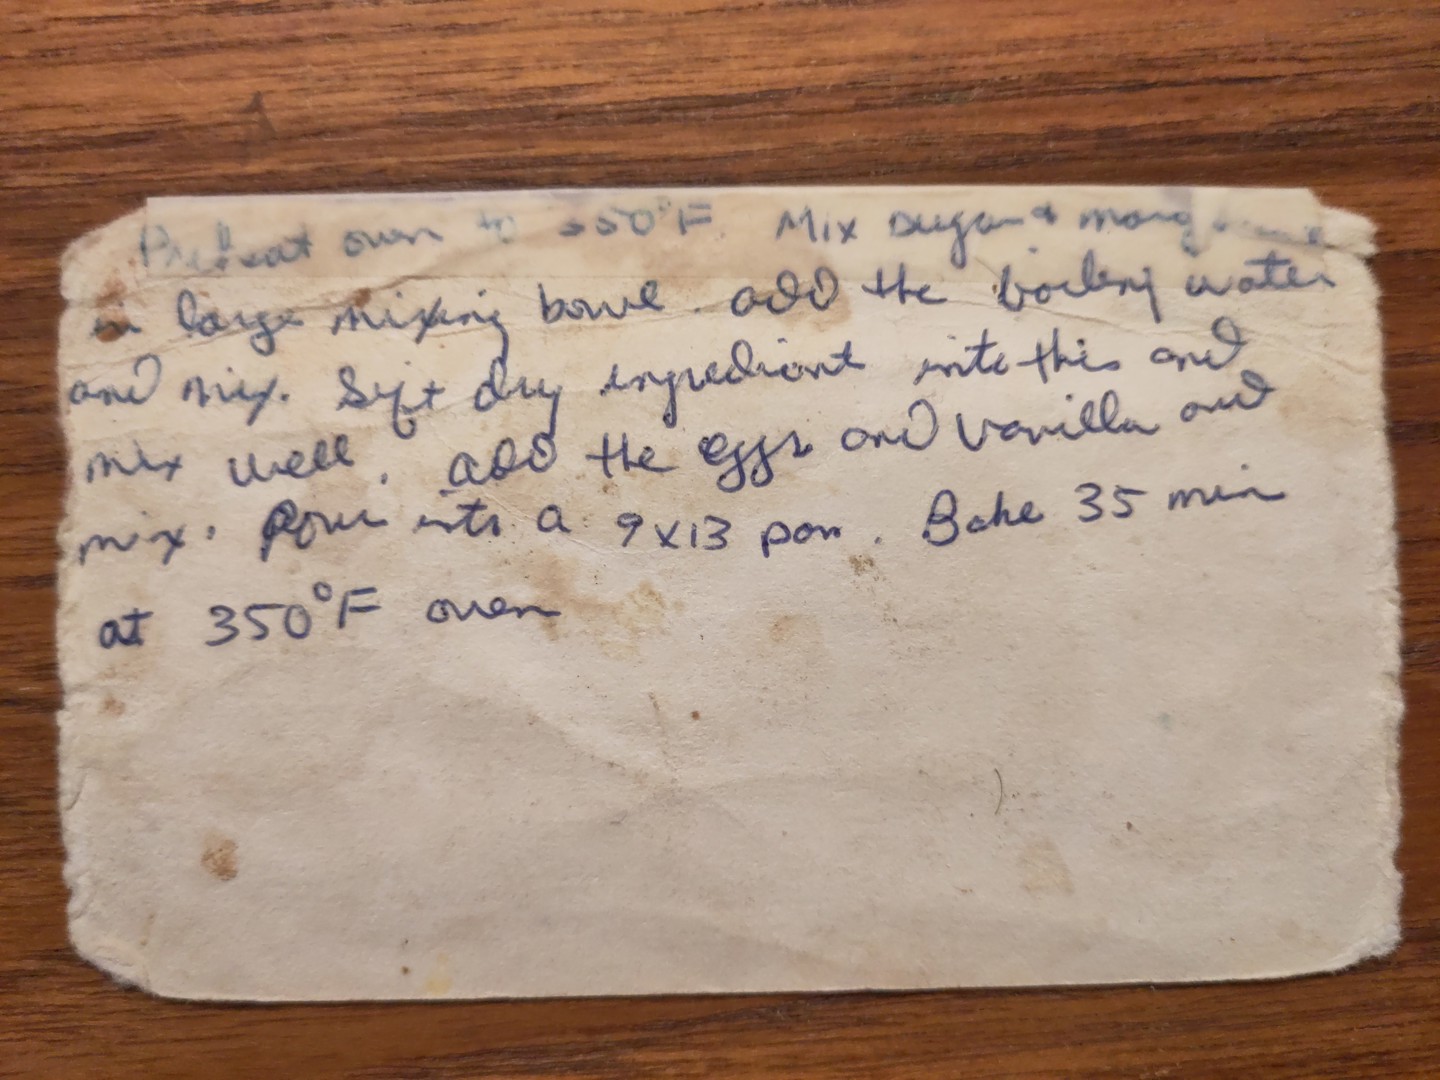 Preheat oven to 350°F. Mix sugar &
in large mixing bowl. add the boiling water
and mix. Sift dry ingredient into this and
mix well. add the eggs and vanilla and
mix. Pour into a 9x13 pan. Bake 35 min
at 350°F oven